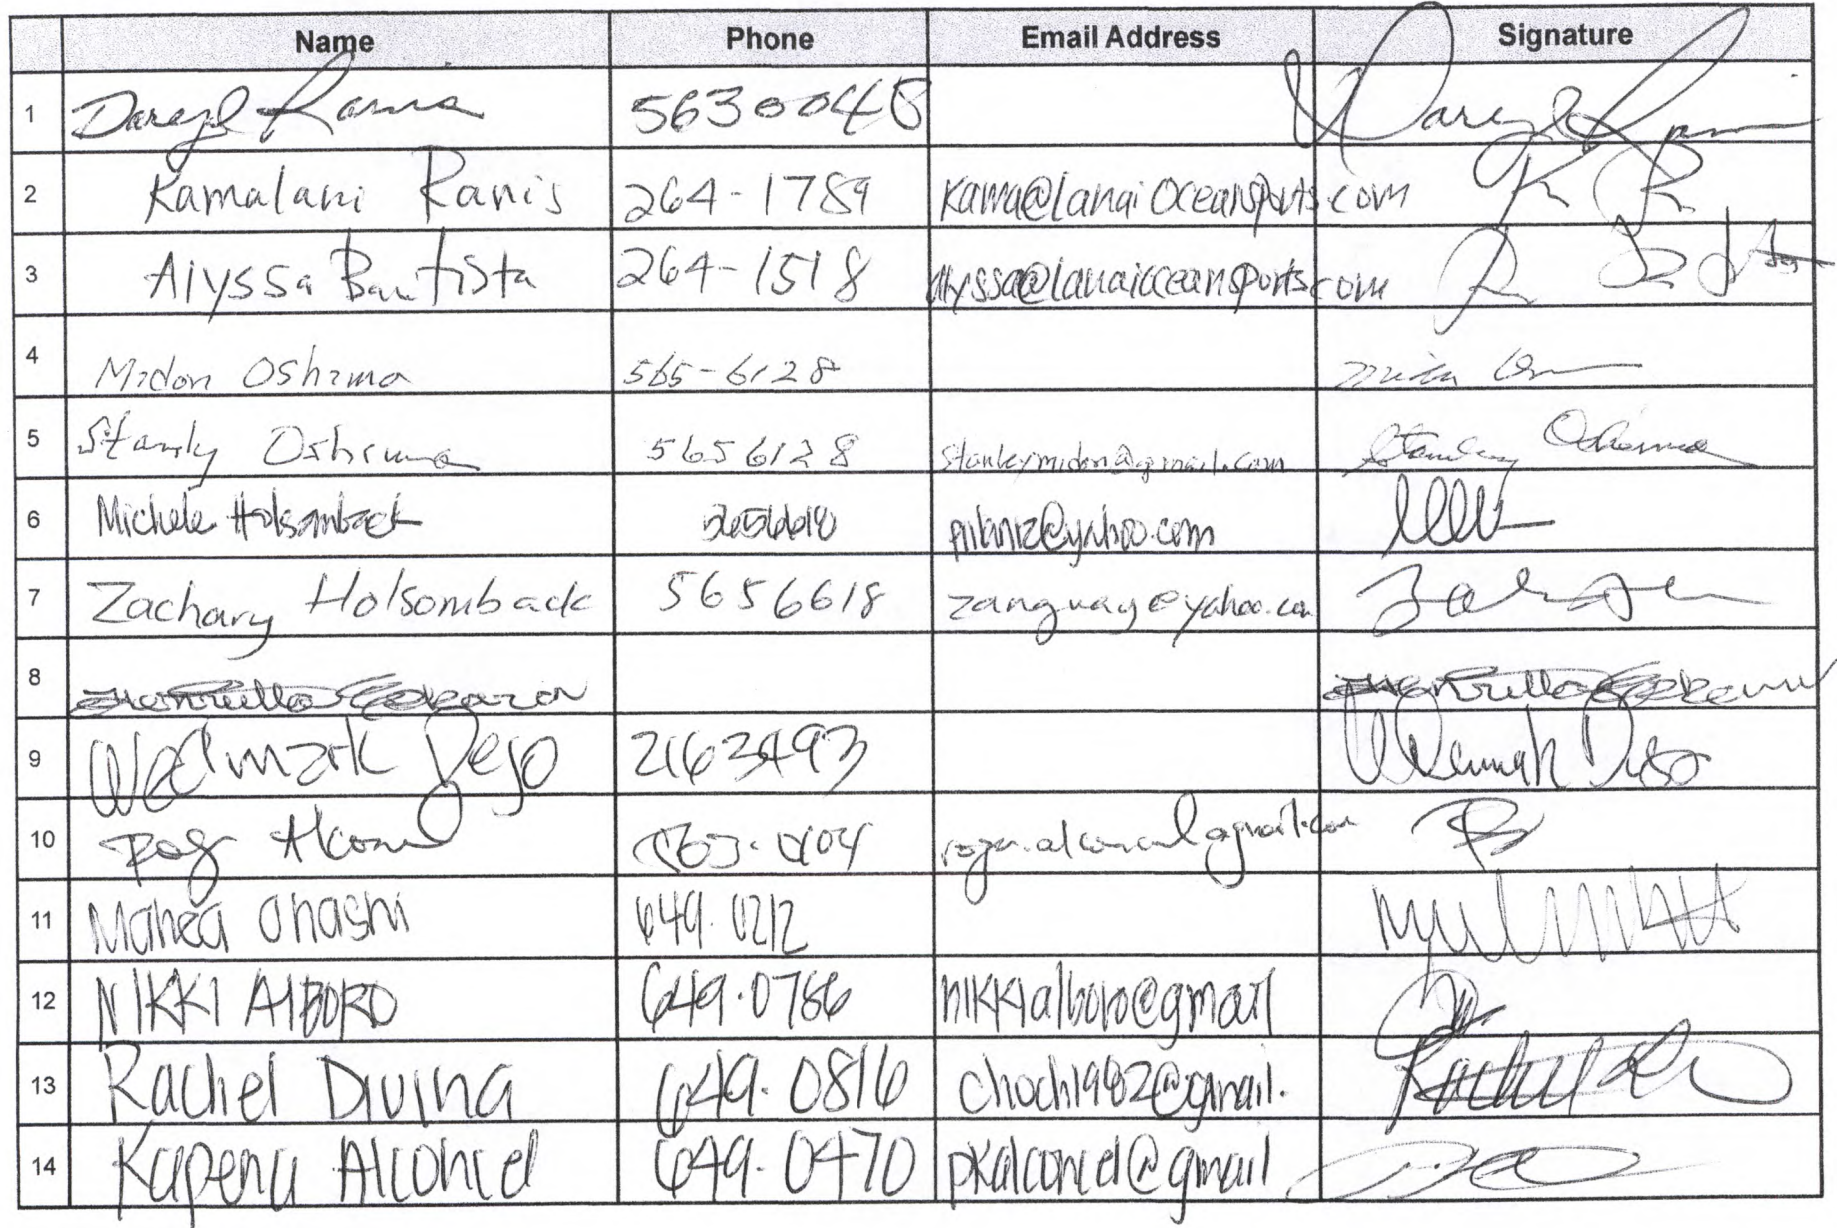 Name Phone Email Address Signature
1 Dareyl Ranis 5630048 Dareyl Ranis
2 Kamalani Ranis 264-1789 Kama@lanaioceansports.com K R
3 Alyssa Bautista 264-1518 alyssa@lanaioceansports.com
4 Midori Oshima 565-6128
5 Stanly Oshima 5656128 stanleymidori@gmail.com Stanley Oshima
6 Michele Holsomback 5656618 @yahoo.com
7 Zachary Holsomback 5656618 zanguay@yahoo.com
8
9 Wedmark Dejo 2163493
10 Rog Alconcel roger.alconcel@gmail.com
11 Mahea Ohashi 649.0212
12 NIKKI AlBORO 649.0786 nikkialboro@gmail
13 Rachel Divina 649.0816 choch1982@gmail.
14 Kapena Alconcel 649.0470 pkalconcel@gmail